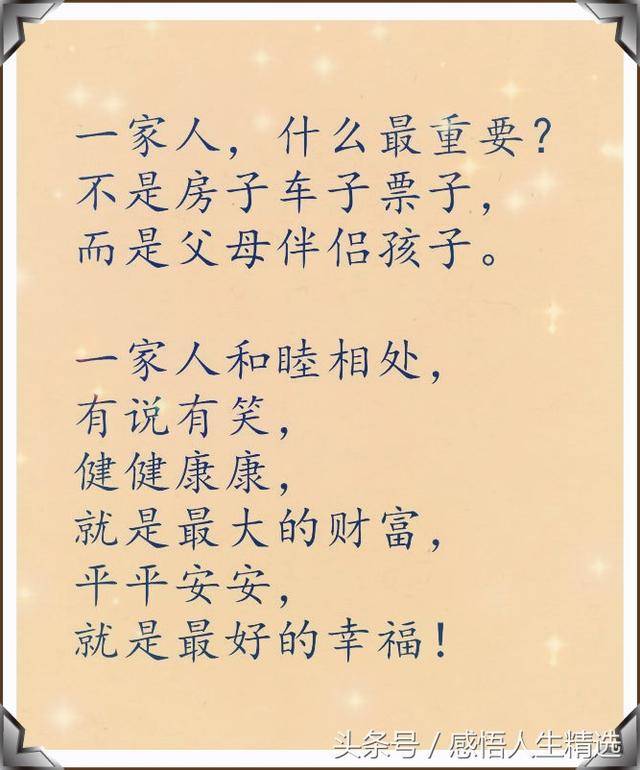 一家人，什么最重要？
不是房子车子票子，
而是父母伴侣孩子。
一家人和睦相处，
有说有笑，
健健康康，
就是最大的财富，
平平安安，
就是最好的幸福！
头条号／感悟人生精选